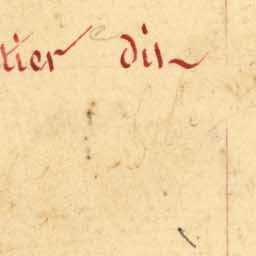 tier dis